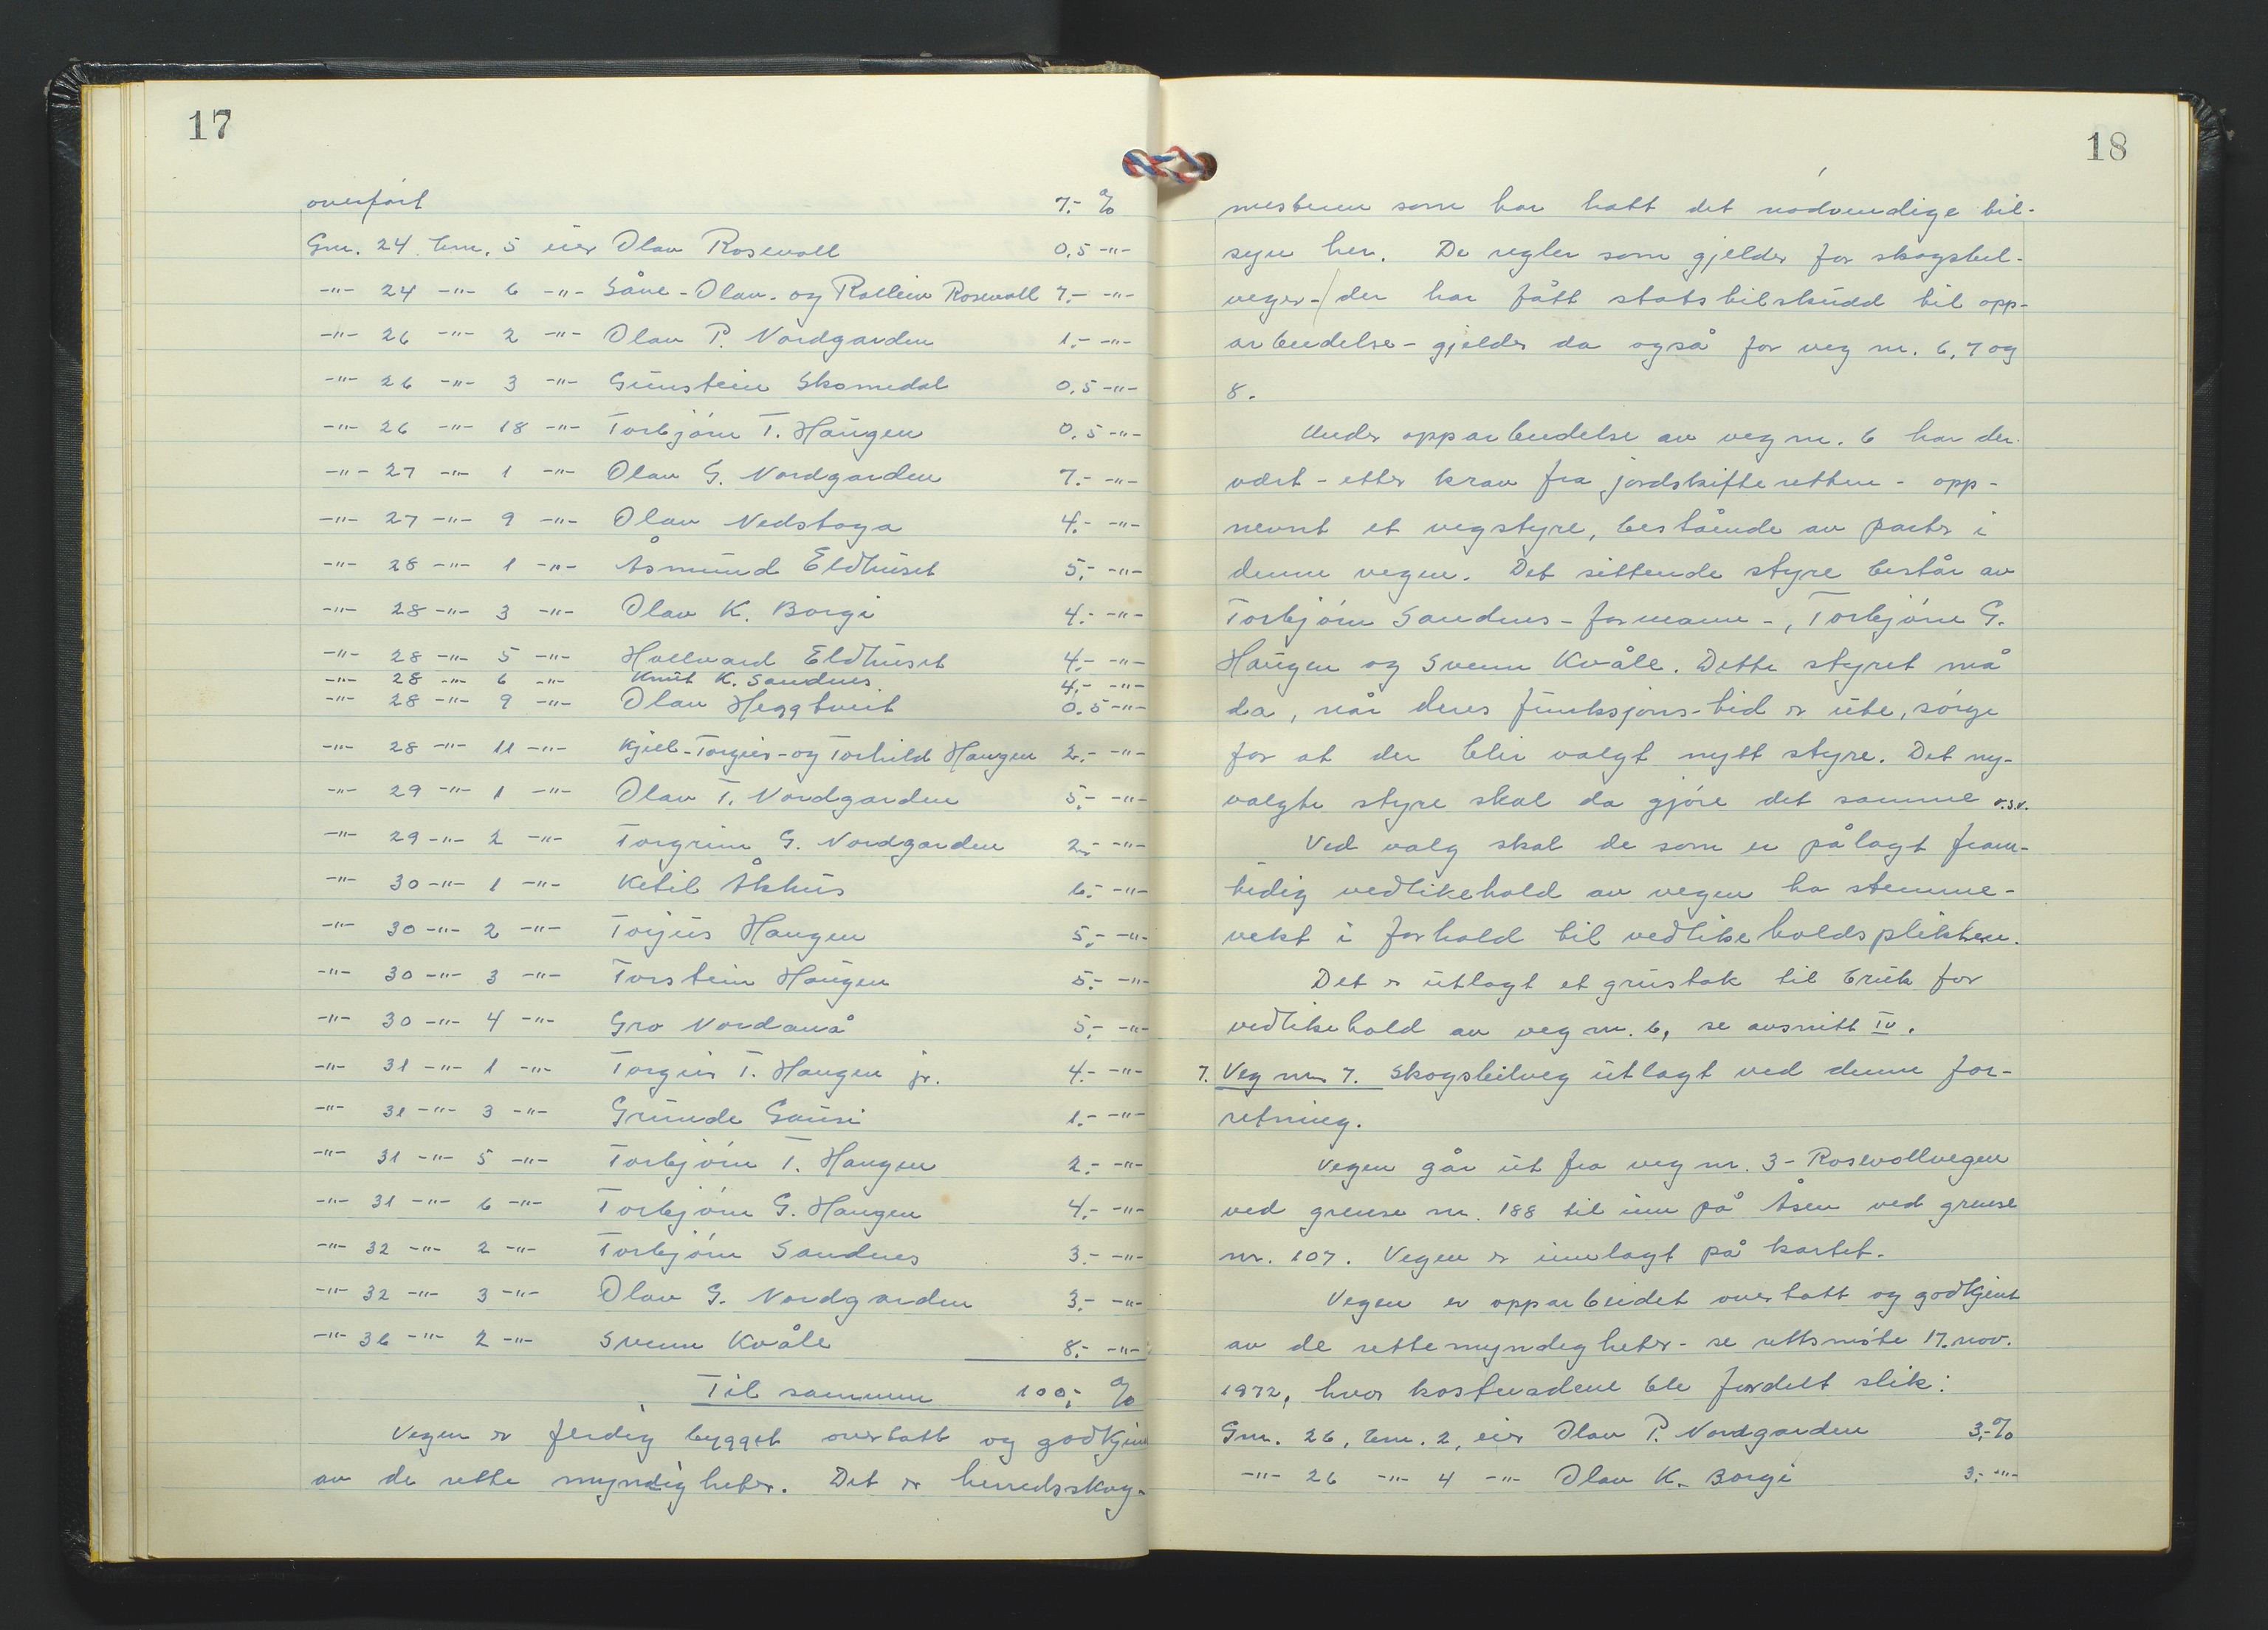 17
overført 7.- %
Gnr. 24 bnr. 5 eier Olav Rosevoll 0,5 -"-
-"- 24 -"- 6 -"- Såve-Olav- og Rollein Rosevoll 7.- -"-
-"- 26 -"- 2 -"- Olav P. Nordgarden 1.- -"-
-"- 26 -"- 3 -"- Gunstein Skomedal 0,5 -"-
-"- 26 -"- 18 -"- Torbjørn T. Haugen 0,5 -"-
-"- 27 -"- 1 -"- Olav G. Nordgarden 7.- -"-
-"- 27 -"- 9 -"- Olav Nedstoga 4.- -"-
-"- 28 -"- 1 -"- Åsmund Eldhuset 5.- -"-
-"- 28 -"- 3 -"- Olav K. Borgi 4.- -"-
-"- 28 -"- 5 -"- Hallvard Eldhuset 4.- -"-
-"- 28 -"- 6 -"- Knut K. Sandnes 4.- -"-
-"- 28 -"- 9 -"- Olav Heggtveit 0.5 -"-
-"- 28 -"- 11 -"- Kjell-Torgeir-og Torhild Haugen 2.- -"-
-"- 29 -"- 1 -"- Olav T. Nordgarden 5.- -"-
-"- 29 -"- 2 -"- Torgrim G. Nordgarden 2.- -"-
-"- 30 -"- 1 -"- Ketil Åkhus 6.- -"-
-"- 30 -"- 2 -"- Torjus Haugen 5.- -"-
-"- 30 -"- 3 -"- Torstein Haugen 5.- -"-
-"- 30 -"- 4 -"- Gro Nordanå 5.- -"-
-"- 31 -"- 1 -"- Torgeir T. Haugen jr. 4.- -"-
-"- 31 -"- 3 -"- Grunde Gausi 1.- -"-
-"- 31 -"- 5 -"- Torbjørn T. Haugen 2.- -"-
-"- 31 -"- 6 -"- Torbjørn G. Haugen 4.- -"-
-"- 32 -"- 2 -"- Torbjørn Sandnes 3.- -"-
-"- 32 -"- 3 -"- Olav G. Nordgarden 3.- -"-
-"- 36 -"- 2 -"- Svenn Kvåle 8.- -"-
Til sammen 100,- %
Vegen er ferdig bygget overtatt og godkjent
av de rette myndigheter. Det er herredsskog-
18
mesteren som har hatt det nødvendige til-
syn her. De regler som gjelder for skogsbil-
veger - der har fått statstilskudd til opp-
arbeidelse - gjelder da også for veg nr. 6, 7 og
8.
Under opparbeidelse av veg nr. 6 har der
vært - etter krav fra jordskifteretten - opp-
nevnt et vegstyre, bestående av parter i
denne vegen. Det sittende styre består av
Torbjørn Sandnes - formann -, Torbjørn G.
Haugen og Svenn Kvåle. Dette styret må
da, når deres funksjons-tid er ute, sørge
for at der blir valgt nytt styre. Det ny-
valgte styre skal da gjøre det samme o.s.v.
Ved valg skal de som er pålagt fram-
tidig vedlikehold av vegen ha stemme-
vekt i forhold til vedlikeholdsplikten.
Det er utlagt et grustak til bruk for
vedlikehold av veg nr. 6, se avsnitt IV.
7. Veg nr. 7. Skogsbilveg utlagt ved denne for-
retning.
Vegen går ut fra veg nr. 3 - Rosevollvegen
ved grense nr. 188 til inn på Åsen ved grense
nr. 107. Vegen er innlagt på kartet.
Vegen er opparbeidet overtatt og godkjent
av de rette myndigheter - se rettsmøte 17. nov.
1972, hvor kostnadene ble fordelt slik:
Gnr. 26, bnr. 2, eier Olav P. Nordgarden 3,- %
-"- 26 -"- 4 -"- Olav K. Borgi 3,- -"-